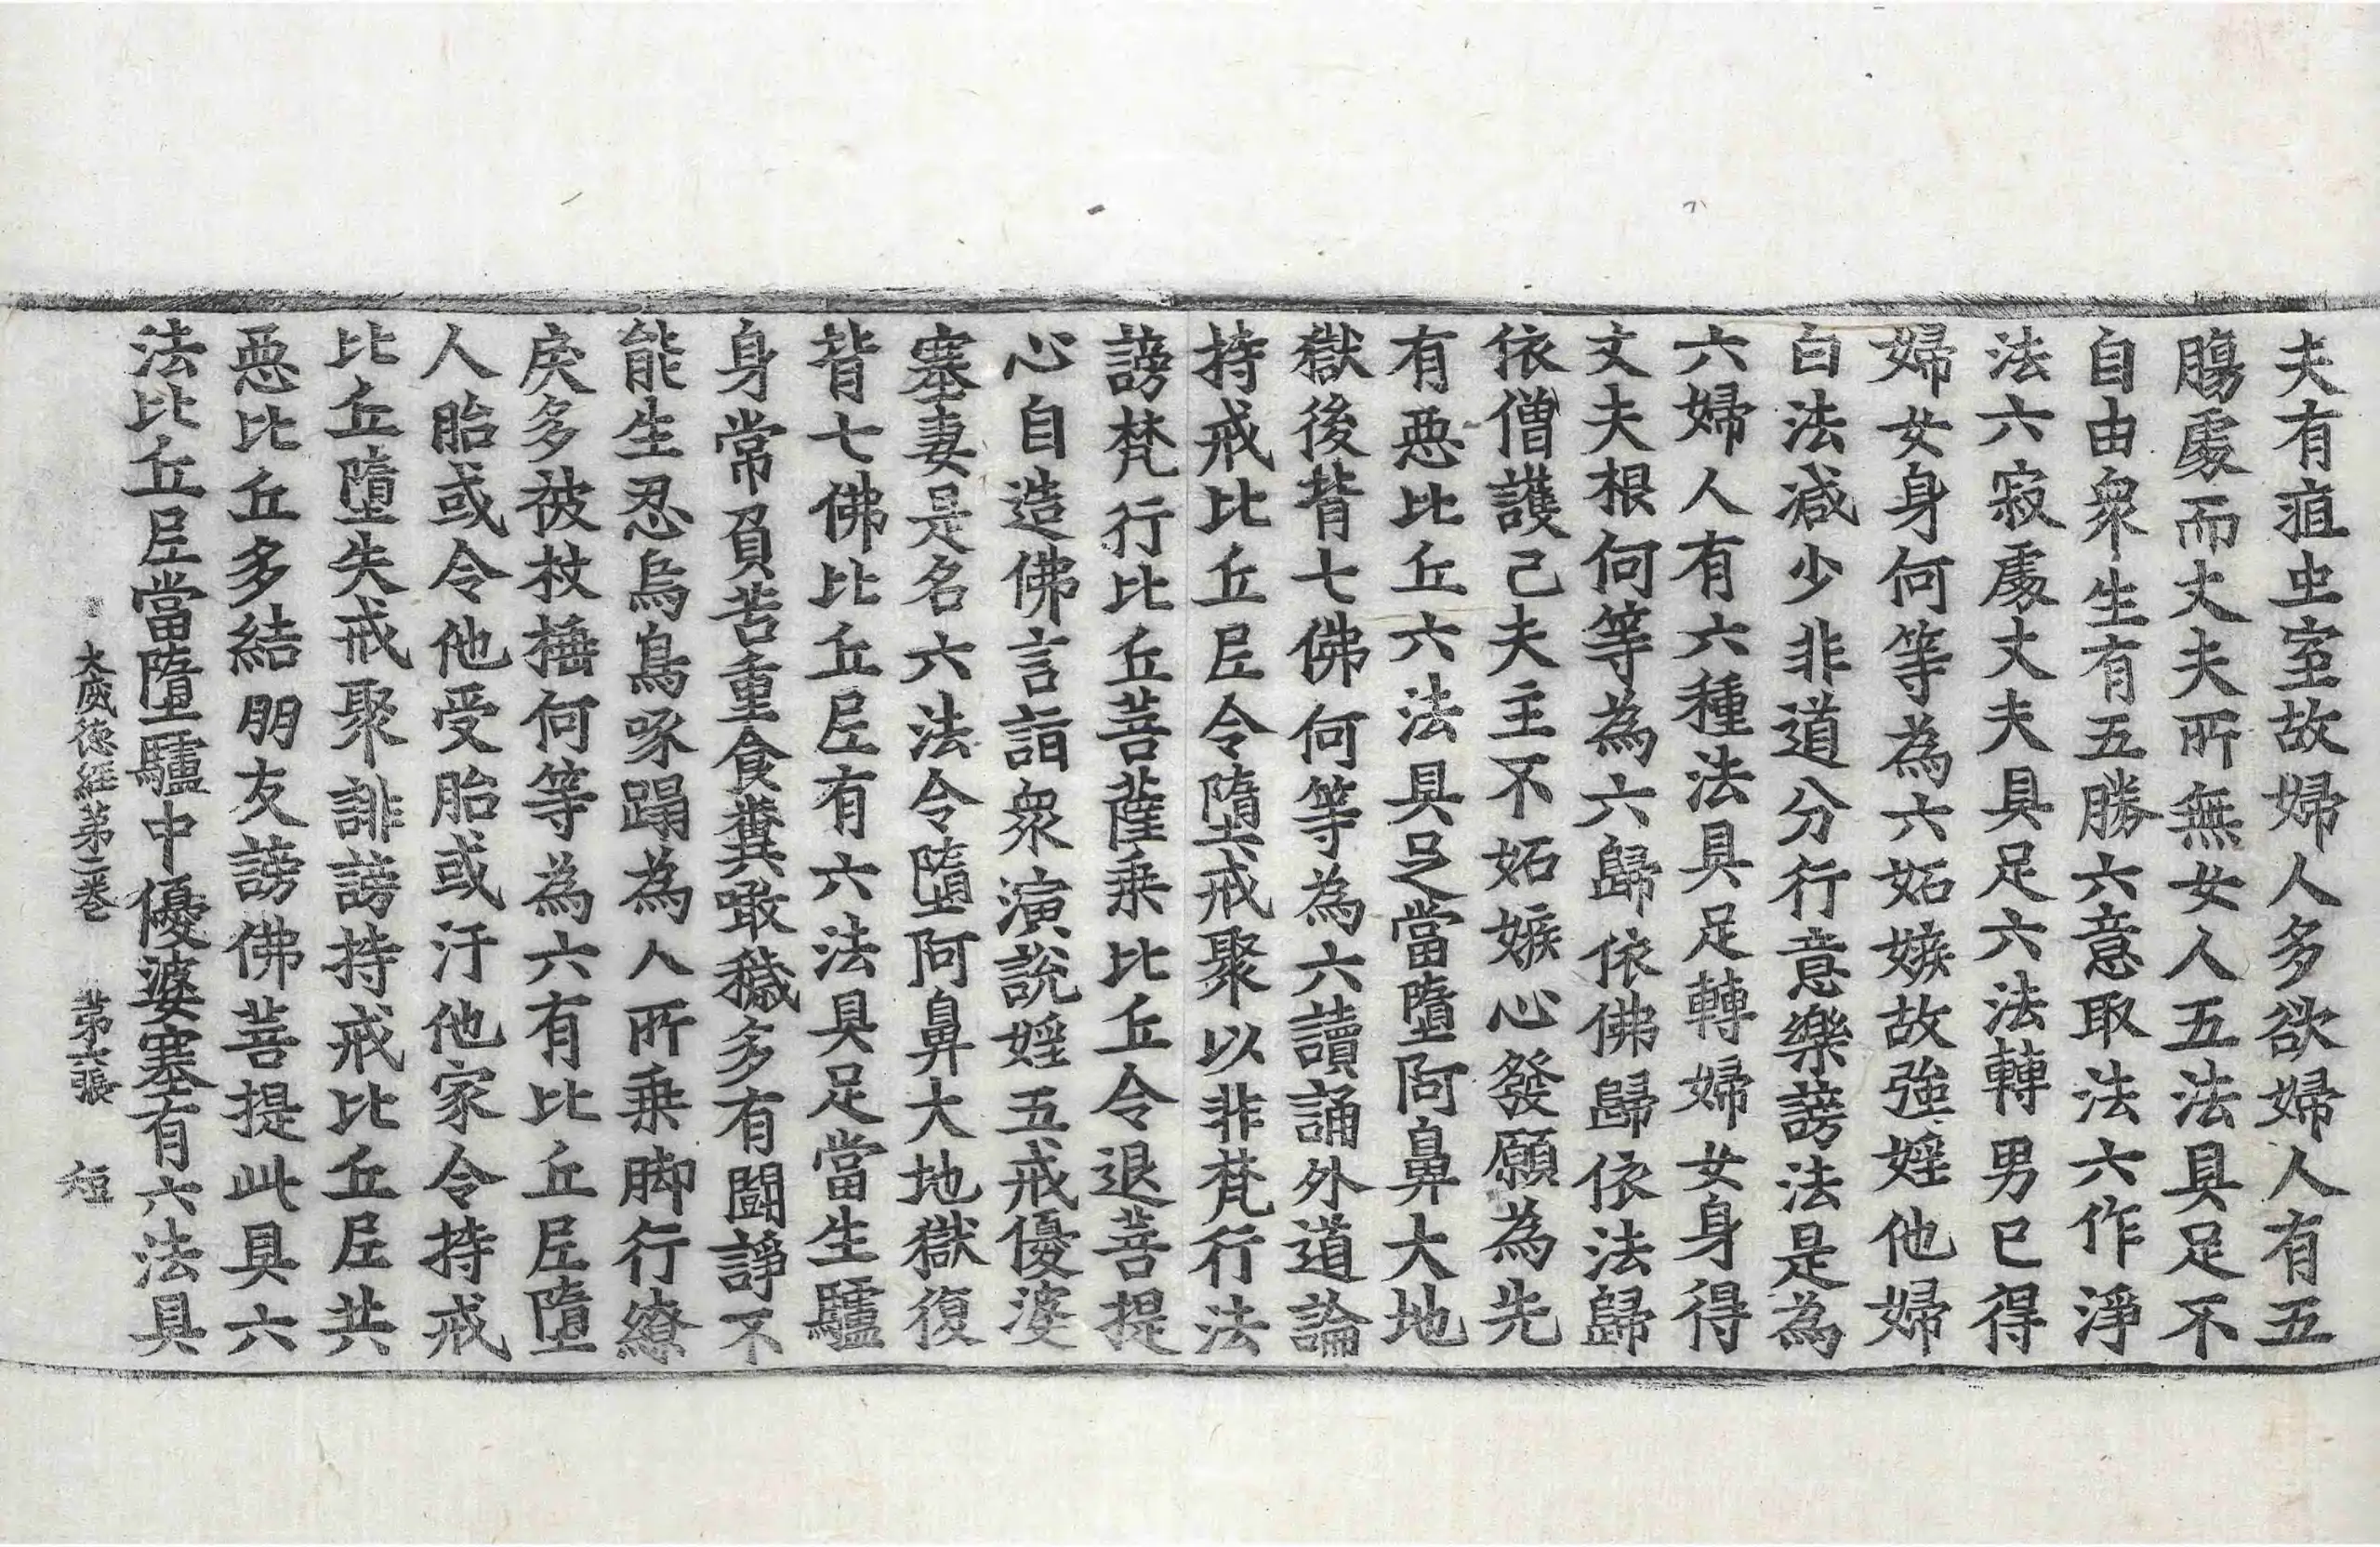 夫有疽虫室故婦人多欲婦人有五
腸處而丈夫所無女人五法具足不
自由衆生有五勝六意取法六作淨
法六寂處丈夫具足六法轉男已得
婦女身何等為六妬嫉故強婬他婦
白法减少非道分行意樂謗法是為
六婦人有六種法具足轉婦女身得
丈夫根何等為六歸依佛歸依法歸
依僧護己夫主不妬嫉心發願為先
有惡比丘六法具足當墮阿鼻大地
獄後背七佛何等為六讀誦外道論
持戒比丘尼令墮失戒聚以非梵行法
謗梵行比丘菩薩乗比丘令退菩提
心自造佛言詣衆演說婬五戒優婆
塞妻是名六法令墮阿鼻大地獄復
背七佛比丘尼有六法具足當生驢
身常負苦重食糞噉穢多有鬪諍不
能生忍烏鳥啄蹋為人所乗脚行繚
戾多被杖捶何等為六有比丘尼墮
人胎或令他受胎或汙他家令持戒
比丘墮失戒聚誹謗持戒比丘尼共
惡比丘多結朋友謗佛菩提此具六
法比丘尼當墮驢中優婆塞有六法具
大威德經第二卷　第六張　短